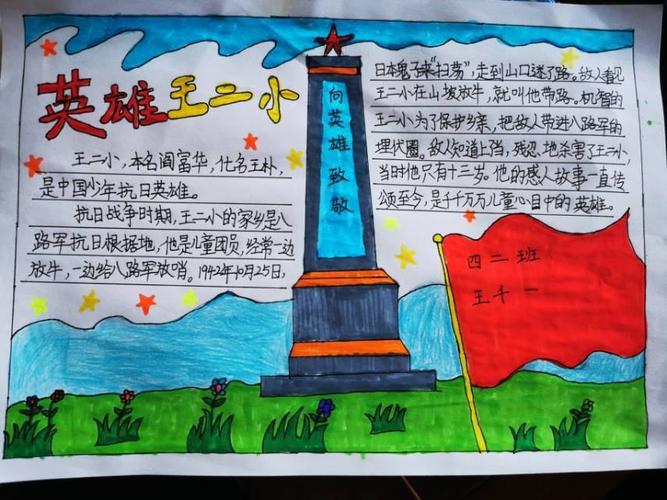 英雄王二小
王二小，本名阎富华，化名王朴，
是中国少年抗日英雄。
抗日战争时期，王二小的家乡是八
路军抗日根据地，他是儿童团员，经常一边
放牛，一边给八路军放哨。1942年10月25日，
向英雄致敬
日本鬼子来"扫荡"，走到山口迷了路。敌人看见
王二小在山坡放牛，就叫他带路。机智的
王二小为了保护乡亲，把敌人带进八路军的
埋伏圈。敌人知道上当，残忍地杀害了王二小，
当时他只有十三岁。他的感人故事一直传
颂至今，是千千万万儿童心目中的英雄。
四二班
王千一